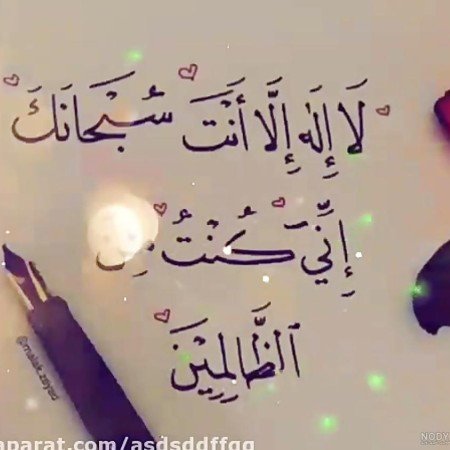 لَا إِلَهَ إِلَّا أَنْتَ سُبْحَانَكَ
إِنِّي كُنْتُ مِنَ
الظَّالِمِيْنَ
@malak.zayed
aparat.com/asdsddffgg